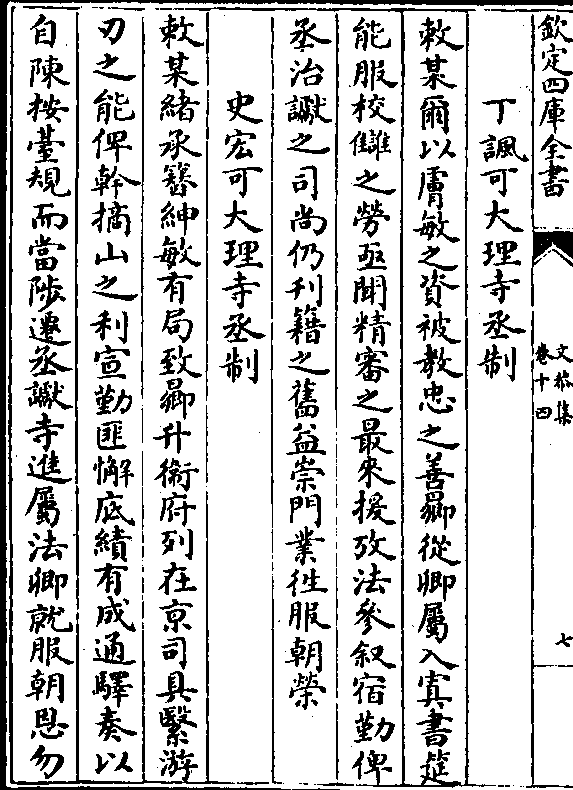 欽定四庫全書
文恭集
卷十四
七
丁諷可大理寺丞制
敕某爾以膚敏之資被教忠之善曏從卿屬入寘書筵
能服校讎之勞亟聞精審之最來援攷法參叙宿勤俾
丞治讞之司尚仍刋籍之舊益崇門業徃服朝榮
史宏可大理寺丞制
敕某緒承簪紳敏有局致曏升衞府列在京司具繄游
刃之能俾幹摘山之利宣勤匪懈底績有成通驛奏以
自陳按臺規而當陟遷丞讞寺進屬法卿就服朝恩勿